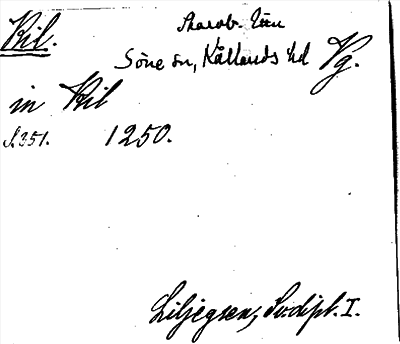 Kil.
Skarab. län
Söne sn, Kållands hd Vg.
in Kil
S. 351. 1250.
Liljegren, Sv. dipl. I.